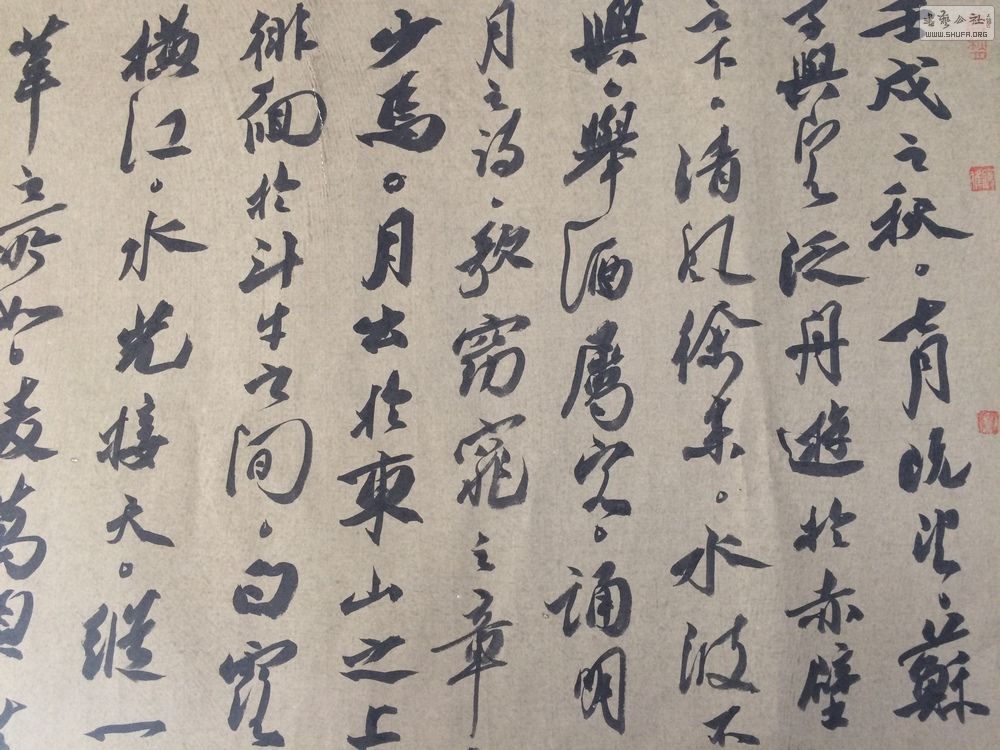 壬戌之秋。七月既望。蘇
子與客泛舟遊於赤壁
之下。清風徐來。水波不
興。舉酒屬客。誦明
月之詩。歌窈窕之章
少焉。月出於東山之上
徘徊於斗牛之間。白露
橫江。水光接天。縱一
葦之所如。凌萬頃
書藝公社
WWW.SHUFA.ORG